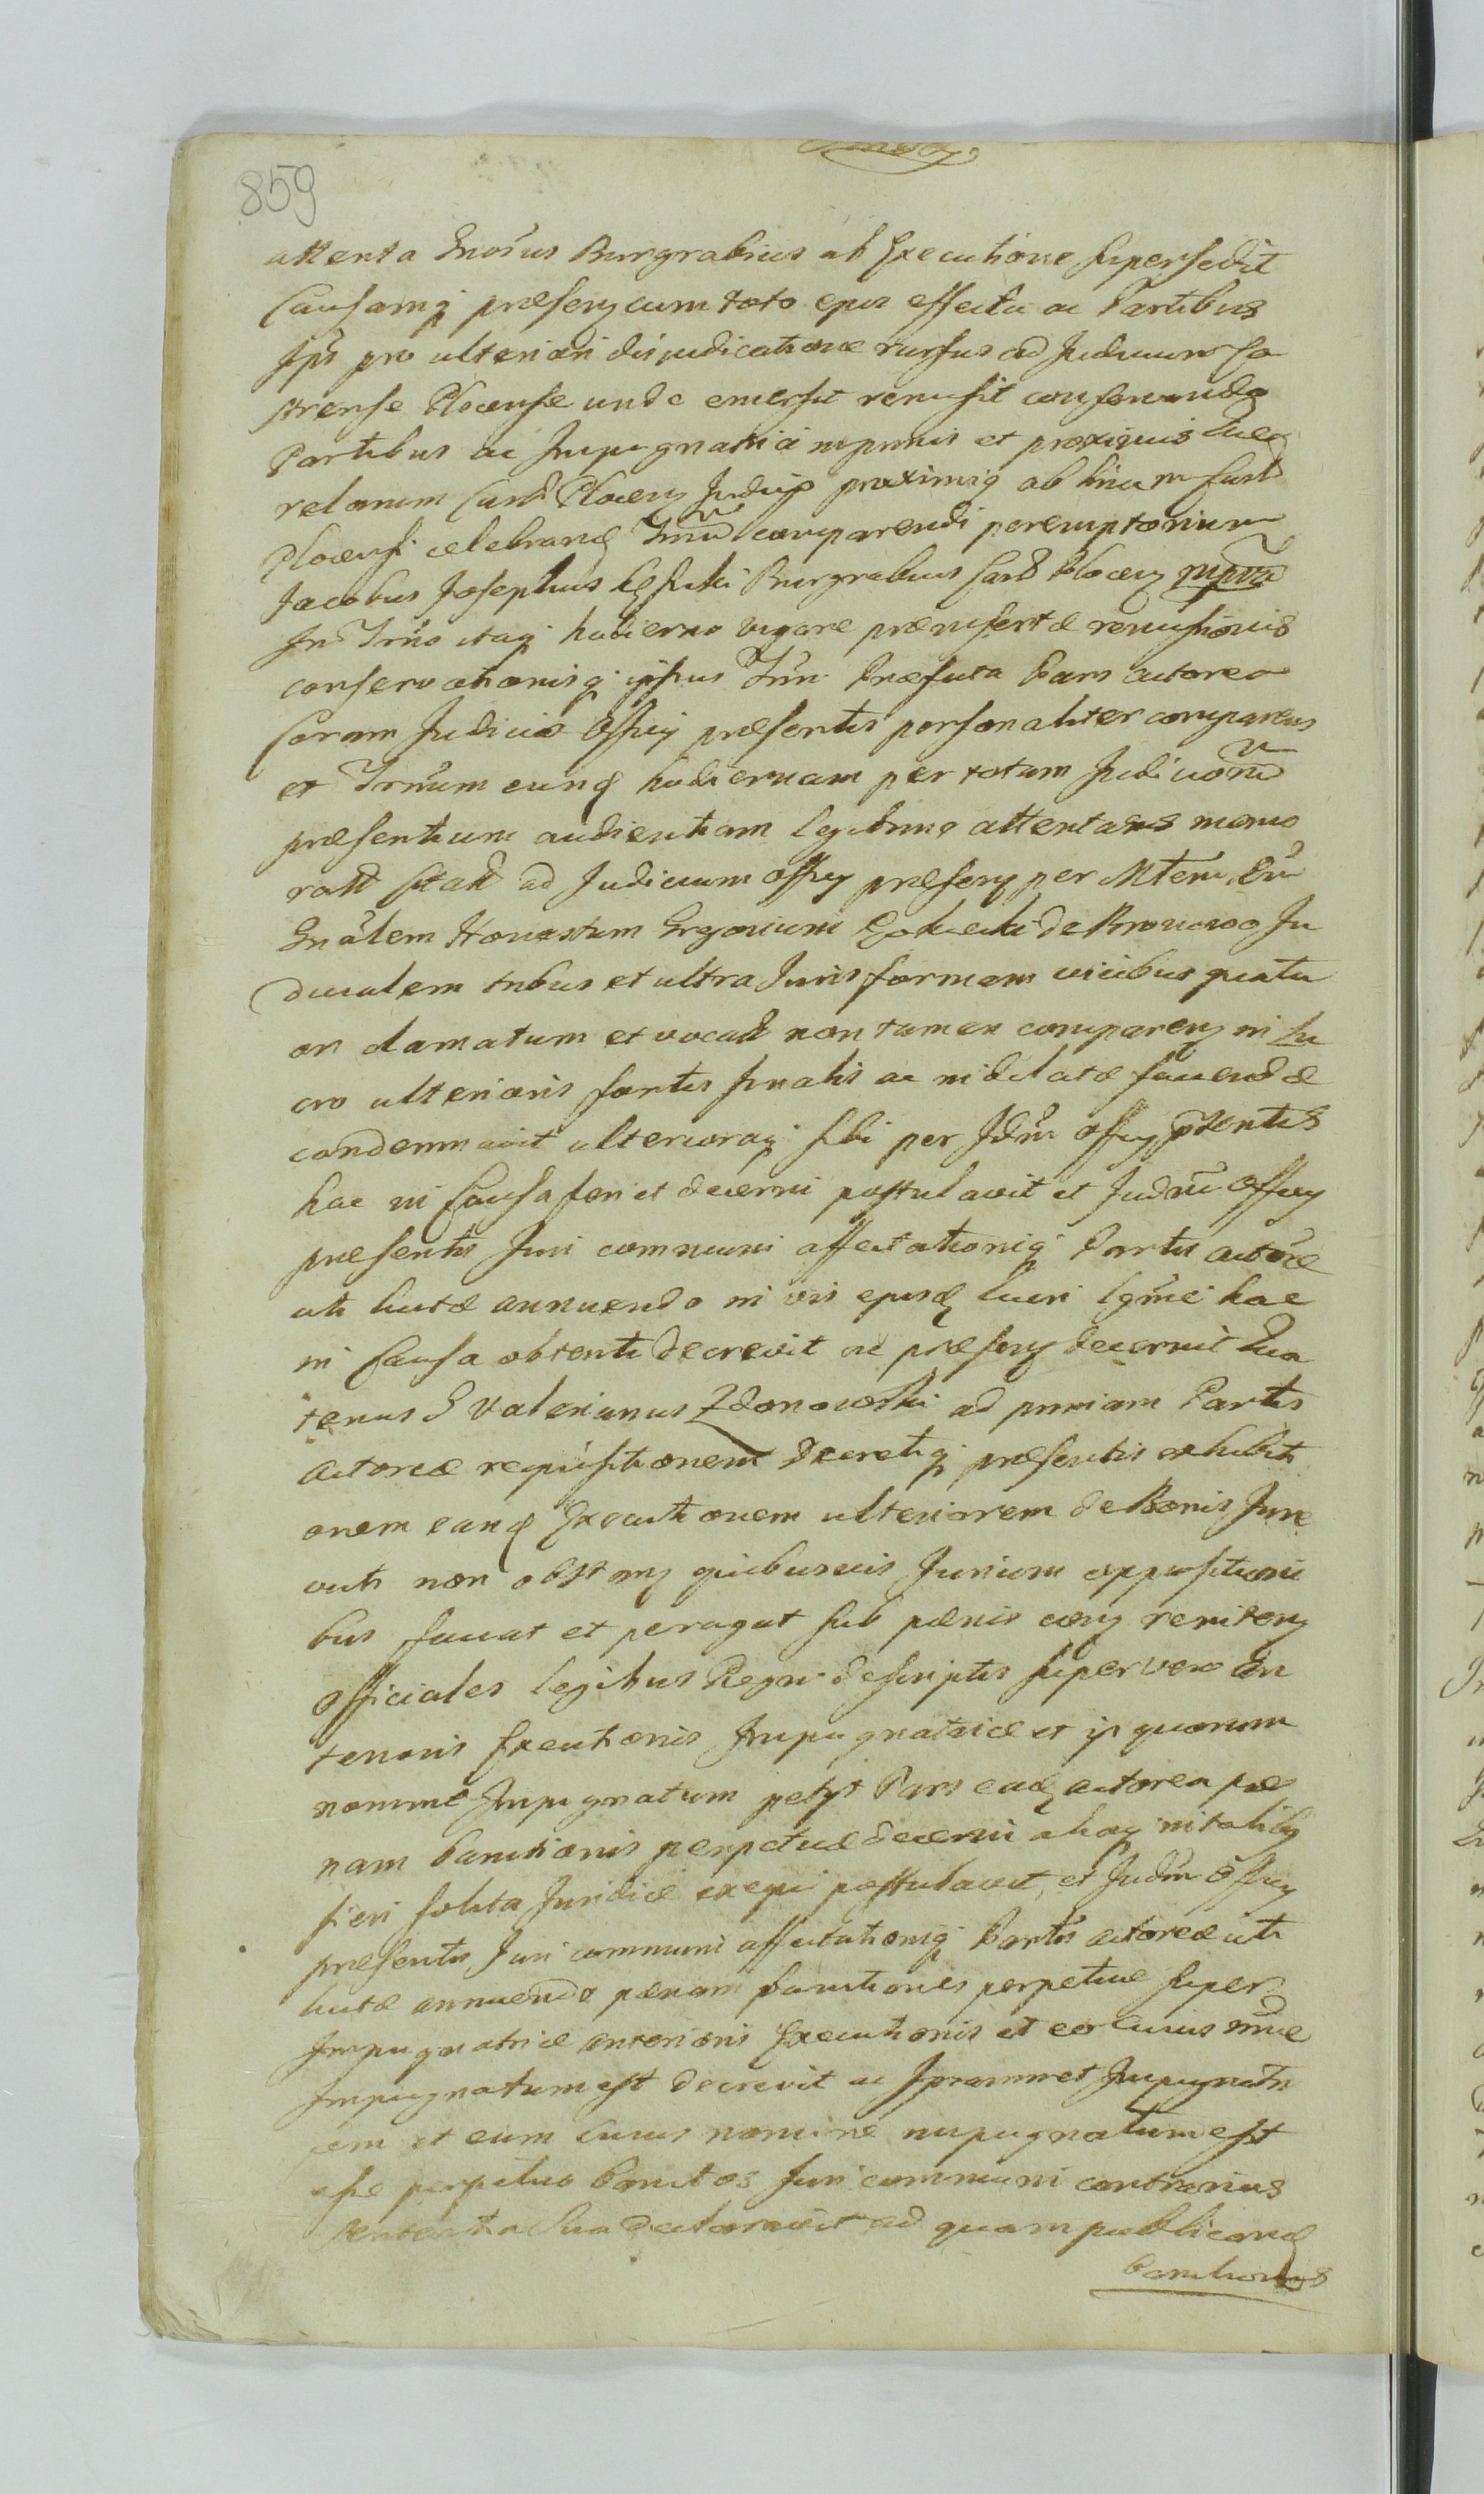 859
attenta Gnosus Burgrabius ab Executione supersedit
Causamq præseñ cum toto ejus effectu ac Partibus
Ipis pro ulteriori dijudicatione rursus ad Judicium Ca
strense Plocense unde emersit remisit conservando
Partibus ac Impugnatrici in primis et proximis Que
relarum Castr Plocen Judiciis proximis ab hinc in Castro
Plocensi celebrand Trnum comparendi peremptorium
Jacobus Josephus Burgrabius Castr Plocen mpria
In Trno itaq hodierno vigore præinsertæ remissionis
conservationisq ipsius Trni Præfata Pars actorea
Coram Judicio Officij præsentis personaliter comparens
et Trnum eund hodiernam per totam Judiciorum
præsentium audientiam legitime attentans memo
ratt Citatt ad Judicium Officij præsen per Mtem Rni
Gnalem Honestum de Ju
dicialem tribus et ultra Juris formam vicibus quatu
or clamatum et vocatt non tamen comparen in lu
cro ulterioris sortis finalis ac in dilatæ faciendæ
condemnavit ulterioraq sibi per Jdm officij pntentis
hac in Causa fieri et decerni postulavit et Judm Officij
præsentis Juri communi affectationiq Partis actoreæ
uti justæ annuendo in vim ejusd lucri lgmei hac
in Causa obtenti decrevit ac præsen decernit Qua
tenus G Valerianus Zdonowski ad primam Partis
Actoreæ requisitionem Decretiq præsentis exhibiti
onem eand Executionem ulteriorem de Bonis Jure
victi non obstan quibusvis Jurium oppositioni
bus faciat et peragat sub pænis con reniten
Officiales legibus Regni descriptis super vero An
terioris Executionis Impugnatrice et ip quorum
nomine Impugnatum petijt Pars ead actorea pœ
nam bannitionis perpetuæ decerni aliaq in talibq
fieri solita Juridice exequi postulavit, et Judm Officij
præsentis Juri communi affectationiq Partis actoreæ uti
justæ annuendo pænam bannitionis perpetuæ super
Impugnatrice anterioris Executionis et eo cuius nne
Impugnatum est decrevit ac Ipsammet Impugnatri
cem et eum cuius nomine impugnatum est
esse perpetuo bannitos Juri communi contrarios
sententia sua declaravit ad quam publicand
bannitionis